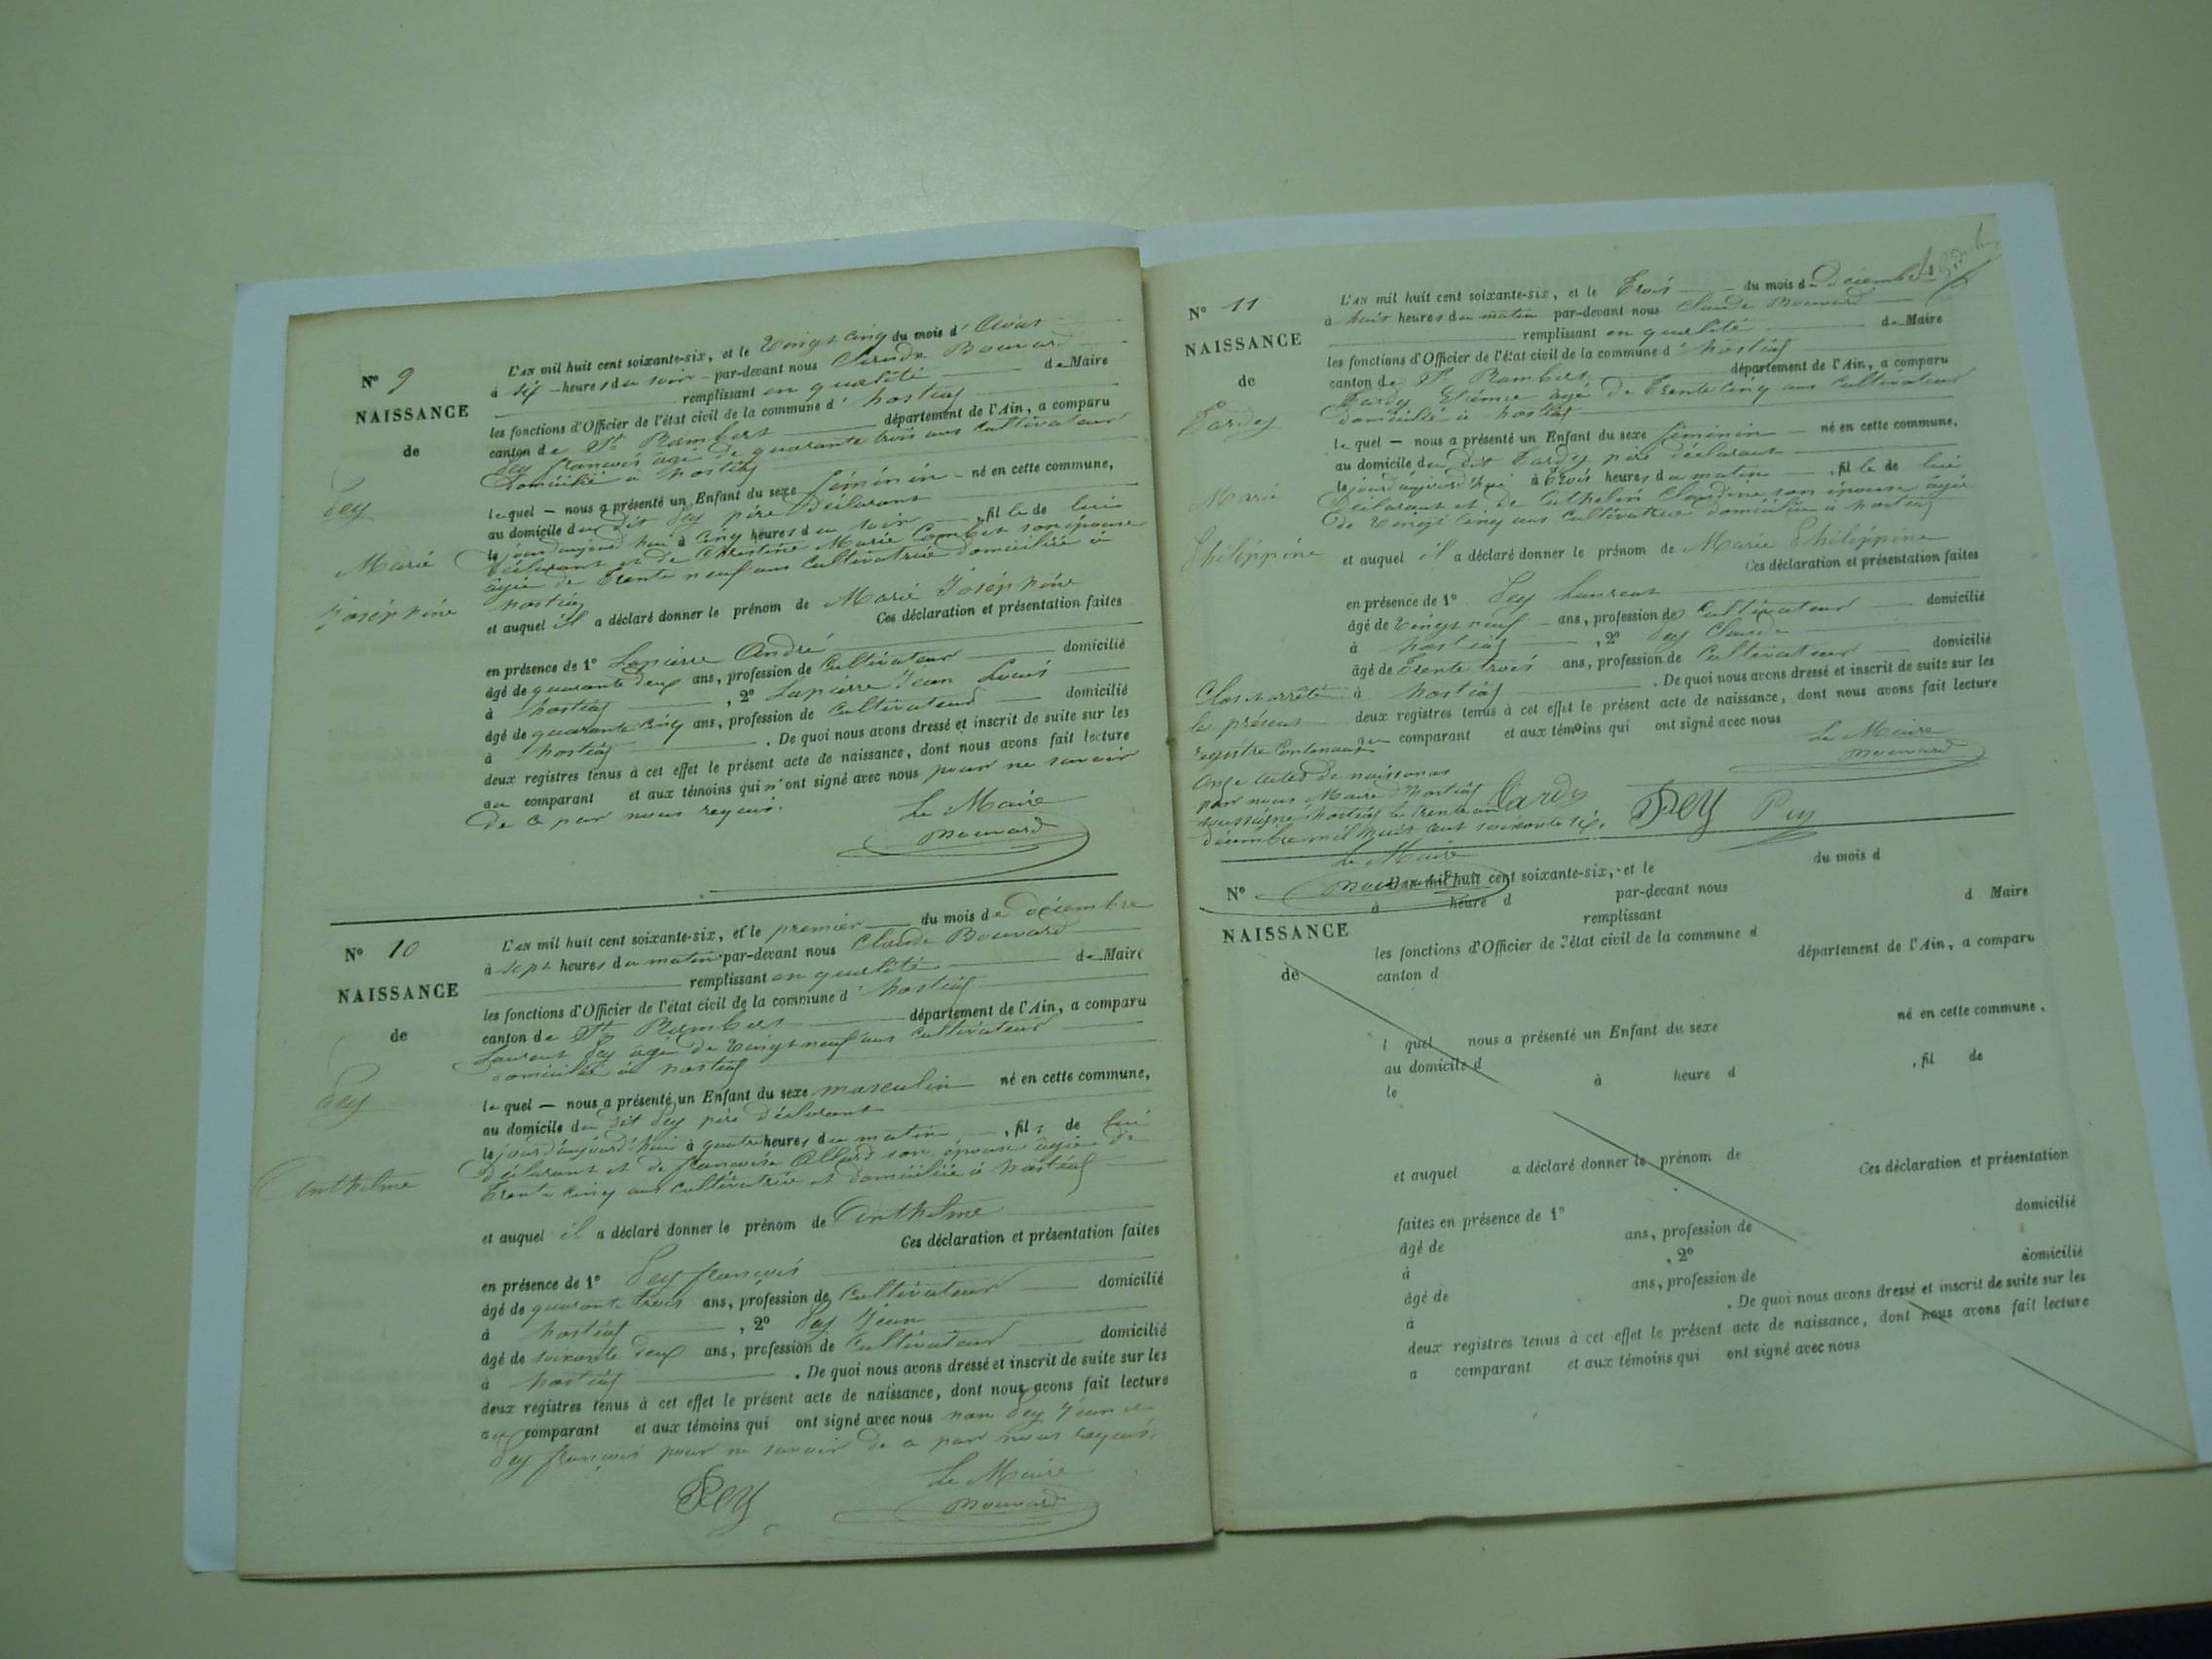 N° 9
NAISSANCE
de
Pey
Marie
Joséphine
L'AN mil huit cent soixante-six, et le vingt cinq du mois d'Août
à six heures du soir par-devant nous Claude Bouvard
remplissant en qualité de Maire
les fonctions d'Officier de l'état civil de la commune d'hostiaz
canton de St Rambert département de l'Ain, a comparu
Pey françois âgé de quarante trois ans Cultivateur
domicilié à hostiaz
lequel — nous a présenté un Enfant du sexe féminin né en cette commune,
au domicile du dit Pey père déclarant
le jour d'aujourd'hui à cinq heures du soir, fille de lui
déclarant et de Christine Marie Combet son épouse
agée de trente neuf ans Cultivatrice domiciliée à
hostiaz
et auquel il a déclaré donner le prénom de Marie Joséphine
Ces déclaration et présentation faites
en présence de 1° Lapierre André
âgé de quarante deux ans, profession de Cultivateur domicilié
à hostiaz, 2° Lapierre Jean Louis
âgé de quarante cinq ans, profession de Cultivateur domicilié
à hostiaz. De quoi nous avons dressé et inscrit de suite sur les
deux registres tenus à cet effet le présent acte de naissance, dont nous avons fait lecture
au comparant et aux témoins qui n'ont signé avec nous pour ne savoir
de ce par nous requis.
Le Maire
Bouvard
N° 10
NAISSANCE
de
Pey
Anthelme
L'AN mil huit cent soixante-six, et le premier du mois de décembre
à sept heures du matin par-devant nous Claude Bouvard
remplissant en qualité de Maire
les fonctions d'Officier de l'état civil de la commune d'hostiaz
canton de St Rambert département de l'Ain, a comparu
Laurent Pey âgé de vingt neuf ans Cultivateur
domicilié à hostiaz
lequel — nous a présenté un Enfant du sexe masculin né en cette commune,
au domicile du dit Pey père déclarant
le jour d'aujourd'hui à quatre heures du matin, fils de lui
déclarant et de françoise Allard son épouse agée de
trente cinq ans cultivatrice et domiciliée à hostiaz
et auquel il a déclaré donner le prénom de Anthelme
Ces déclaration et présentation faites
en présence de 1° Pey françois
âgé de quarante trois ans, profession de Cultivateur domicilié
à hostiaz, 2° Pey Jean
âgé de soixante deux ans, profession de Cultivateur domicilié
à hostiaz. De quoi nous avons dressé et inscrit de suite sur les
deux registres tenus à cet effet le présent acte de naissance, dont nous avons fait lecture
au comparant et aux témoins qui ont signé avec nous non Pey Jean et
Pey françois pour ne savoir de ce par nous requis.
Pey
Le Maire
Bouvard
N° 11
NAISSANCE
de
Tardy
Marie
Philippine
L'AN mil huit cent soixante-six, et le trois du mois de décembre
à huit heures du matin par-devant nous Claude Bouvard
remplissant en qualité de Maire
les fonctions d'Officier de l'état civil de la commune d'hostiaz
canton de St Rambert département de l'Ain, a comparu
Tardy Etienne âgé de trente cinq ans Cultivateur
domicilié à hostiaz
lequel — nous a présenté un Enfant du sexe féminin né en cette commune,
au domicile du dit Tardy père déclarant
le jour d'aujourd'hui à trois heures du matin, fille de lui
déclarant et de Claudine son épouse agée
de vingt cinq ans Cultivatrice domiciliée à hostiaz
et auquel il a déclaré donner le prénom de Marie Philippine
Ces déclaration et présentation faites
en présence de 1° Pey Laurent
âgé de vingt neuf ans, profession de Cultivateur domicilié
à hostiaz, 2° Pey Claude
âgé de trente trois ans, profession de Cultivateur domicilié
à hostiaz. De quoi nous avons dressé et inscrit de suite sur les
deux registres tenus à cet effet le présent acte de naissance, dont nous avons fait lecture
au comparant et aux témoins qui ont signé avec nous
Le Maire
Bouvard
Tardy Pey Pey
Clos et arrêté
le présent
registre contenant
onze actes de naissances
par nous Maire d'hostiaz
soussigné hostiaz le trente un
décembre mil huit cent soixante six.
Le Maire
Bouvard
N°
NAISSANCE
de
L'AN mil huit cent soixante-six, et le du mois d
à heure d par-devant nous
remplissant d Maire
les fonctions d'Officier de l'état civil de la commune d
canton d département de l'Ain, a comparu
l quel nous a présenté un Enfant du sexe né en cette commune,
au domicile d
le à heure d , fil de
et auquel a déclaré donner le prénom de
Ces déclaration et présentation
faites en présence de 1°
âgé de ans, profession de domicilié
à , 2°
âgé de ans, profession de domicilié
à . De quoi nous avons dressé et inscrit de suite sur les
deux registres tenus à cet effet le présent acte de naissance, dont nous avons fait lecture
a comparant et aux témoins qui ont signé avec nous